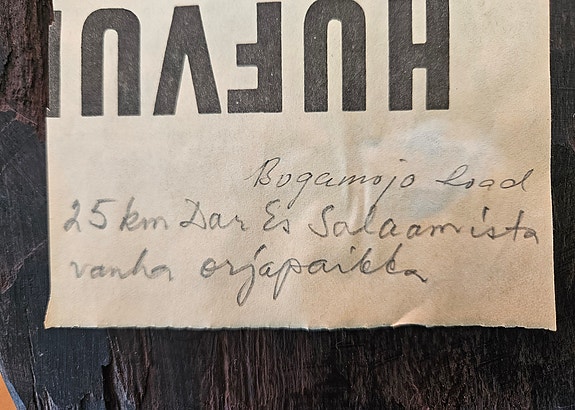 HUFVU
Bogamojo road
25 km Dar Es Salaamista
vanha orjapaikka